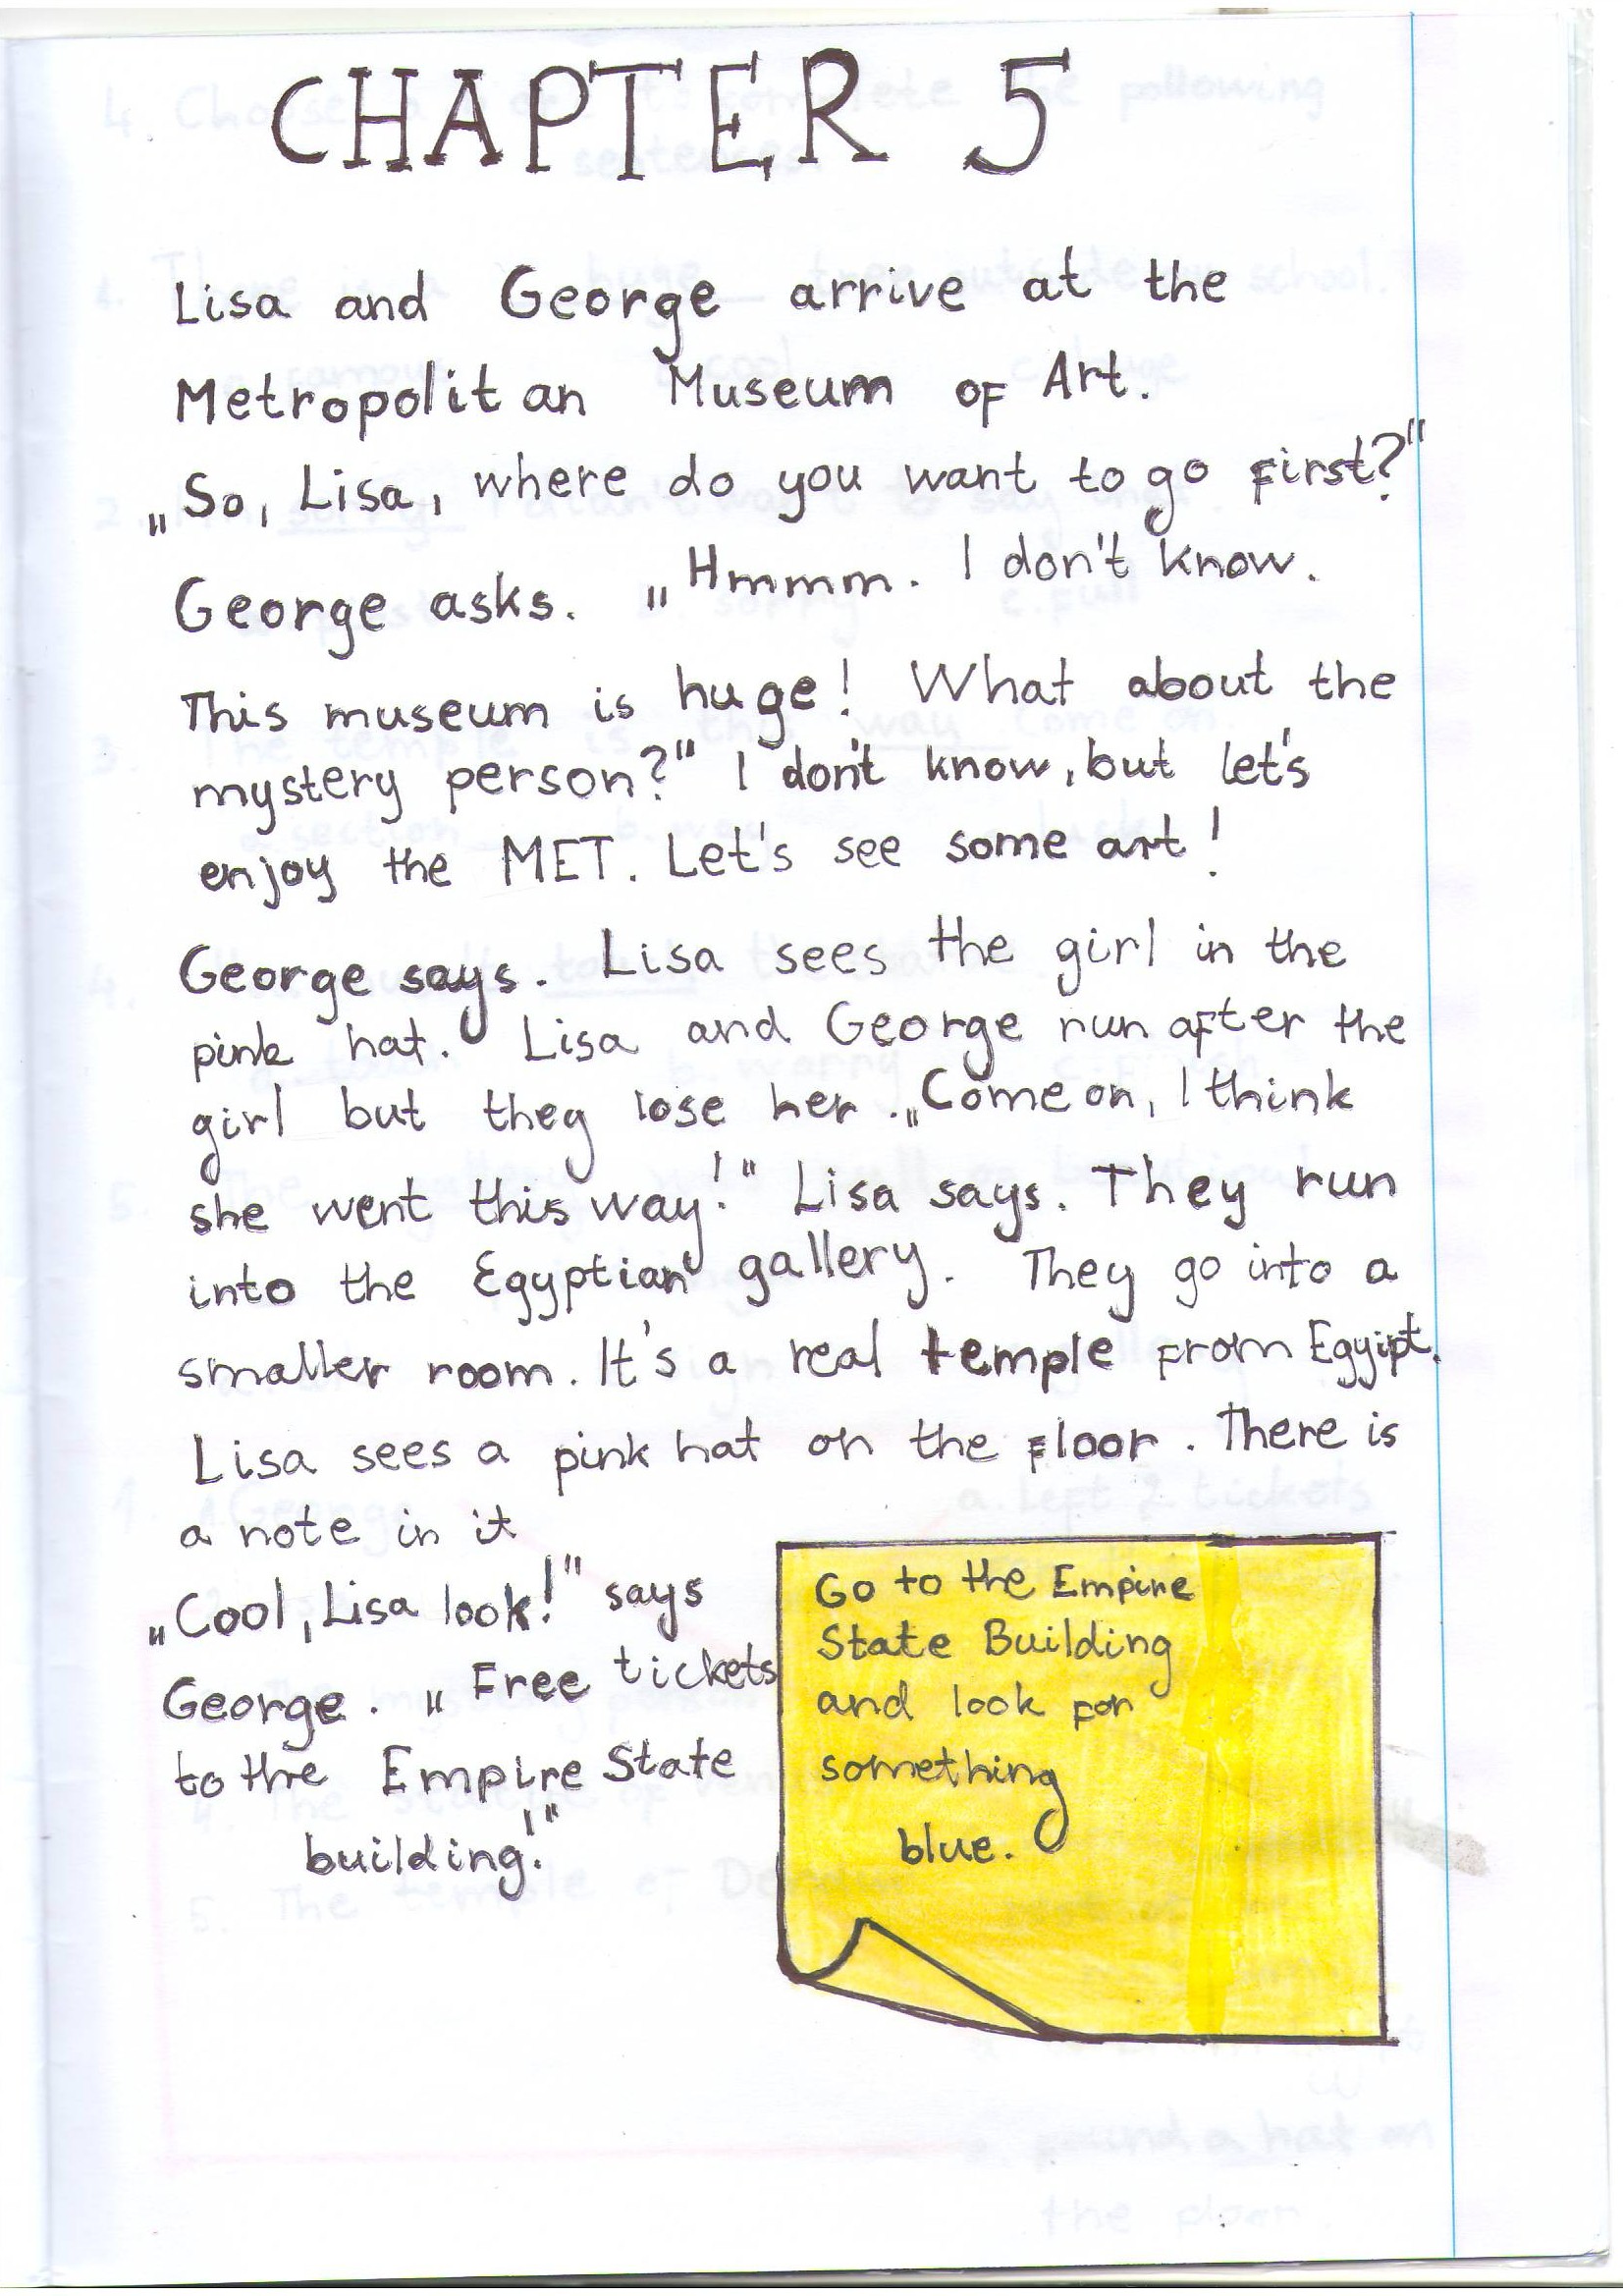 CHAPTER 5
Lisa and George arrive at the
Metropolitan Museum of Art.
„So, Lisa, where do you want to go first?"
George asks. „Hmmm. I don't know.
This museum is huge! What about the
mystery person?" I don't know, but let's
enjoy the MET. Let's see some art!
George says. Lisa sees the girl in the
pink hat. Lisa and George run after the
girl but they lose her. „Come on, I think
she went this way!" Lisa says. They run
into the Egyptian gallery. They go into a
smaller room. It's a real temple from Egyipt.
Lisa sees a pink hat on the floor. There is
a note in it
„Cool, Lisa look!" says
George. „Free tickets
to the Empire State
building!"
Go to the Empire
State Building
and look for
something
blue.